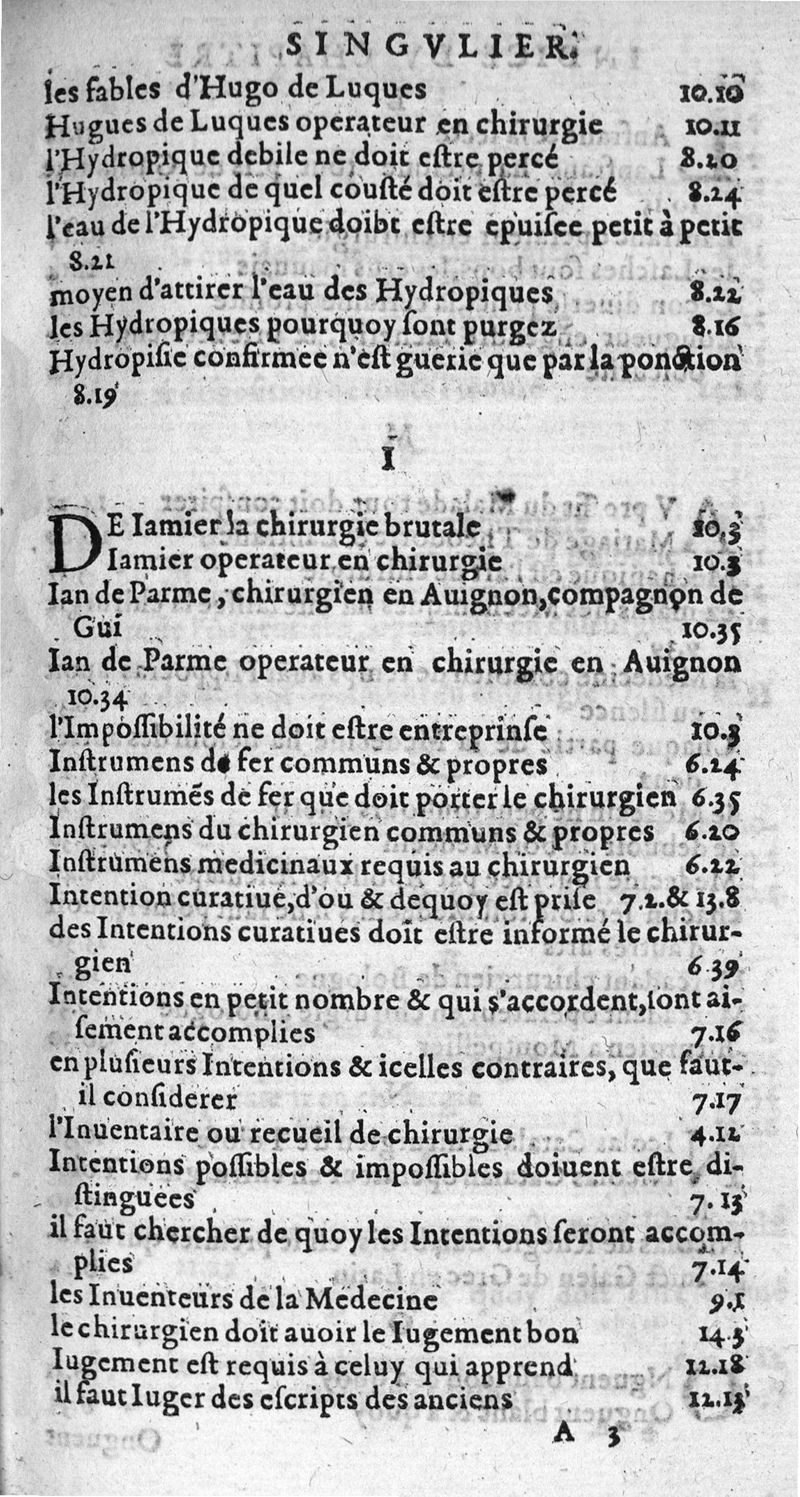 SINGVLIER.
les fables d'Hugo de Luques 10.10
Hugues de Luques operateur en chirurgie 10.11
l'Hydropique debile ne doit eſtre percé 8.20
l'Hydropique de quel couſté doit eſtre percé 8.24
l'eau de l'Hydropique doibt eſtre epuiſee petit à petit
8.21
moyen d'attirer l'eau des Hydropiques 8.22
les Hydropiques pourquoy ſont purgez 8.16
Hydropiſie confirmee n'eſt guerie que par la ponction
8.19
I
DE Iamier la chirurgie brutale 10.3
Iamier operateur en chirurgie 10.3
Ian de Parme, chirurgien en Auignon, compagnon de
Gui 10.35
Ian de Parme operateur en chirurgie en Auignon
10.34
l'Impoſſibilité ne doit eſtre entreprinſe 10.3
Inſtrumens de fer communs & propres 6.24
les Inſtrumẽs de fer que doit porter le chirurgien 6.35
Inſtrumens du chirurgien communs & propres 6.20
Inſtrumens medicinaux requis au chirurgien 6.22
Intention curatiue, d'ou & dequoy eſt priſe 7.2.& 13.8
des Intentions curatiues doit eſtre informé le chirur-
gien 6 39
Intentions en petit nombre & qui s'accordent, ſont ai-
ſement accomplies 7.16
en pluſieurs Intentions & icelles contraires, que faut-
il conſiderer 7.17
l'Inuentaire ou recueil de chirurgie 4.12
Intentions poſſibles & impoſſibles doiuent eſtre di-
ſtinguees 7.13
il faut chercher de quoy les Intentions ſeront accom-
plies 7.14
les Inuenteurs de la Medecine 9.1
le chirurgien doit auoir le Iugement bon 14.3
Iugement eſt requis à celuy qui apprend 12.18
il faut Iuger des eſcripts des anciens 12.13
A 3